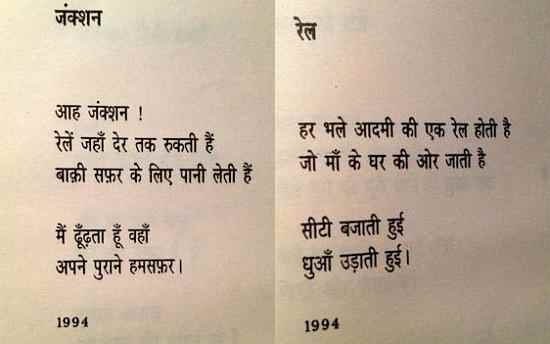 जंक्शन
आह जंक्शन !
रेलें जहाँ देर तक रुकती हैं
बाक़ी सफ़र के लिए पानी लेती हैं
मैं ढूँढ़ता हूँ वहाँ
अपने पुराने हमसफ़र।
1994
रेल
हर भले आदमी की एक रेल होती है
जो माँ के घर की ओर जाती है
सीटी बजाती हुई
धुआँ उड़ाती हुई।
1994